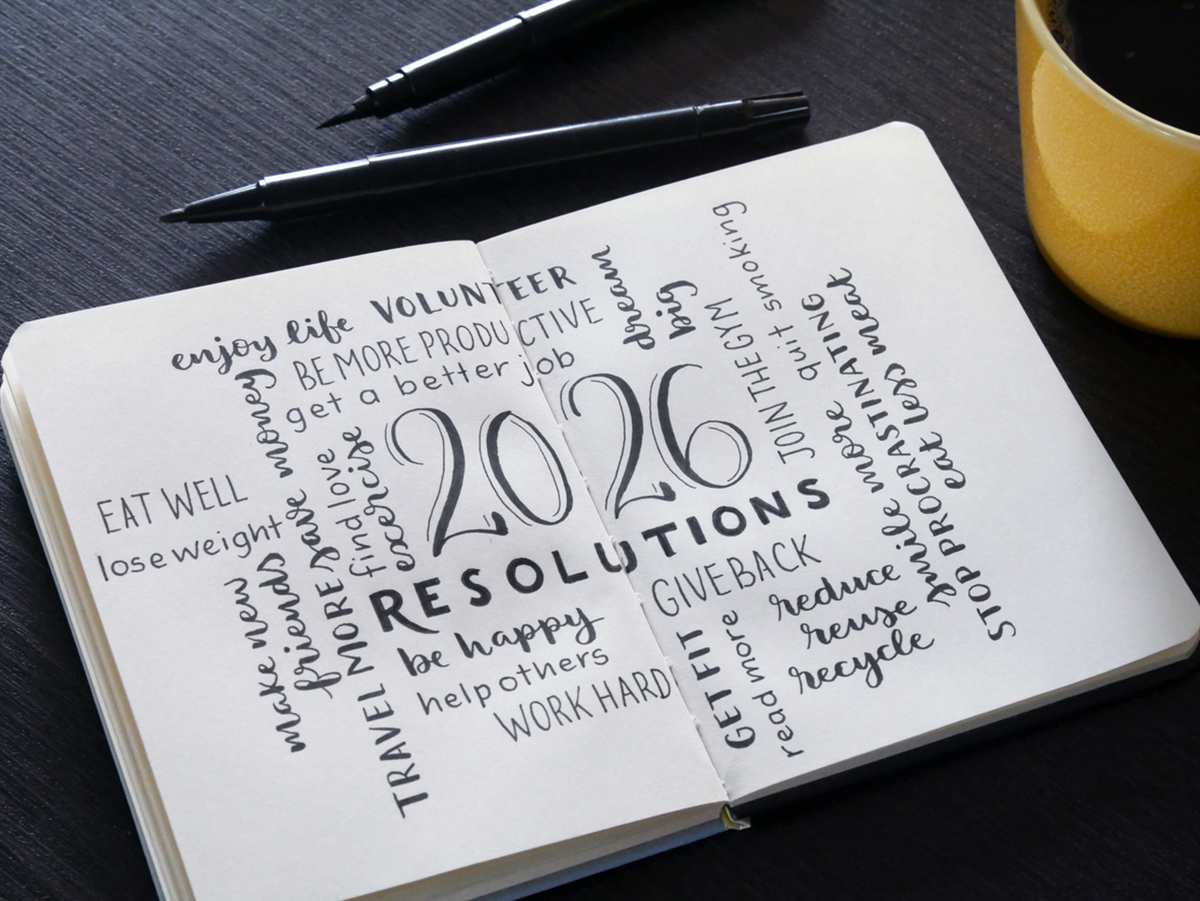 enjoy life
VOLUNTEER
BE MORE PRODUCTIVE
get a better job
dream
big
quit smoking
JOIN THE GYM
save money
find love
excercise
2026
RESOLUTIONS
EAT WELL
lose weight
make new
friends
TRAVEL MORE
be happy
help others
WORK HARD
GIVE BACK
GET FIT
read more
reduce
reuse
recycle
smile more
STOP PROCRASTINATING
eat less meat